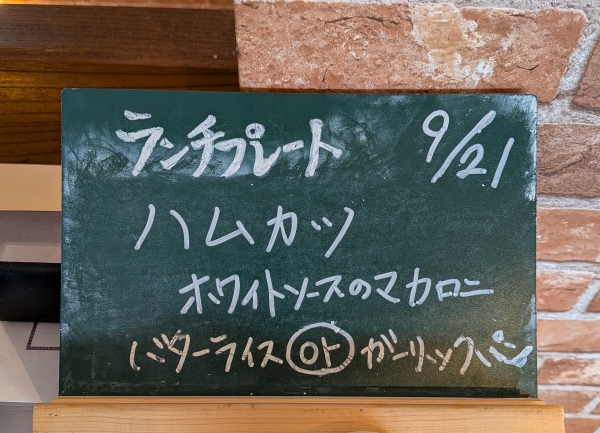 ランチプレート 9/21
ハムカツ
ホワイトソースのマカロニ
バターライス or ガーリックパン